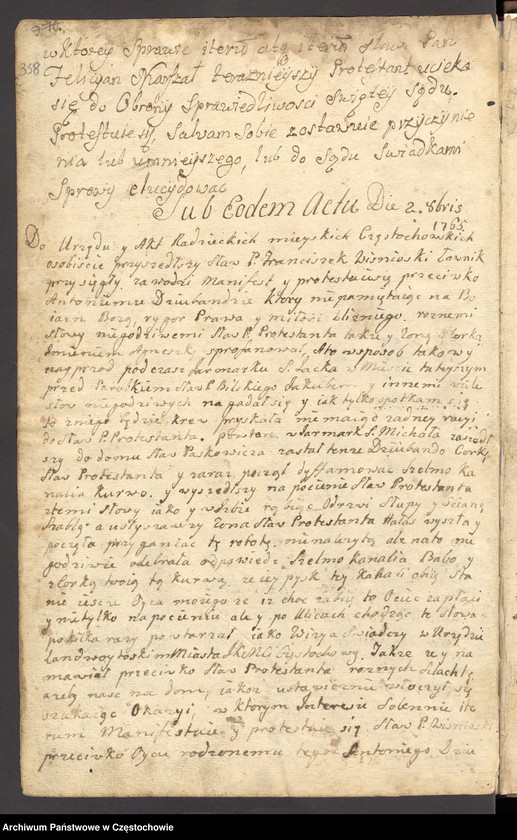 358
w ktorey Sprawie iterum atq iterum Slaw. Pan
Felicyan Karzał terazniejszy Protestant ucieka
się do Obrony Sprawiedliwosci Swiętey Sądu.
Protestuie się Salvam Sobie zostawuie przyczynie
nia lub umnieyszego, lub do Sądu Swiadkami
Sprawy elucydować
Sub Eodem Actu Die 2. 8bris
1765
Do Urzędu y Akt Radzieckich mieyskich Częstochowskich
osobiscie przyszedłszy Slaw P. Franciszek Wismioski Ławnik
przysięgły, zawodzi Manifest y protestuie się przeciwko
Antoniemu Dziubandzie ktory niepamytaiąc na Bo
iazn Bozą, rygor Prawa y miłość blizniego, roznemi
słowy niegodziwemi Slaw P. Protestanta takze y Zonę z Corką
Imieniem Agneszk, sprofanował, Ato wsposob takowy
nayprzod podczas Jarmarku S. Jacka w Miescie tuteyszym
przed Slaw P. Bilskiego Jakubem y innemi wiele
słow niegodziwych nagadał się y iak tylko spotkam się
ze znego będzie krew pryskała niemaiąc zadney racyi
do Slaw P. Protestanta. powtore w Jarmark S. Michała zaszedł
szy do domu Slaw Paskowicza zastał tenze Dziubando Corkę
Slaw Protestanta y zaraz począł dyffamować Szelmo ka
nalia kurwo. y wyszedłszy na pocienie Slaw Protestanta
temi słowy iako y wSzbie rąbiąc Odrzwi Słupy y Scianę
Szablą a usłyszawszy Zona Slaw Protestanta Hałas wyszła y
poczęła przyganiać tę robotę nienalezytą ale nato nie
godziwie odebrała odpowiedz Szelmo Kanalia Babo y
z Corką twoią tą Kurwą, rzecz pysk tey Kanali obiię Sta
nie ieszcze Oyca moiego ze 12 choć zabiię to Ociec zapłaci
y nietylko na pocieniu ale y po Ulicach chodząc te słowa
po kilka razy powtarzał iako Wizya Swiadczy w Urzędzie
Landwoytoskim Miasta JKMCi Częstochowy. Takze y na
mawiał przeciwko Slaw Protestanta roznych Szlachtę
azeby nasc na dom, iakoz ustawicznie włoczył się
szukaiąc Okazyi, w ktorym Interesu Solennie ite
rum Manifestuie y protestuie się Slaw P. Wismioski
przeciwko Oycu rodzonemu tegoz Antoniego Dziu
Archiwum Państwowe w Częstochowie